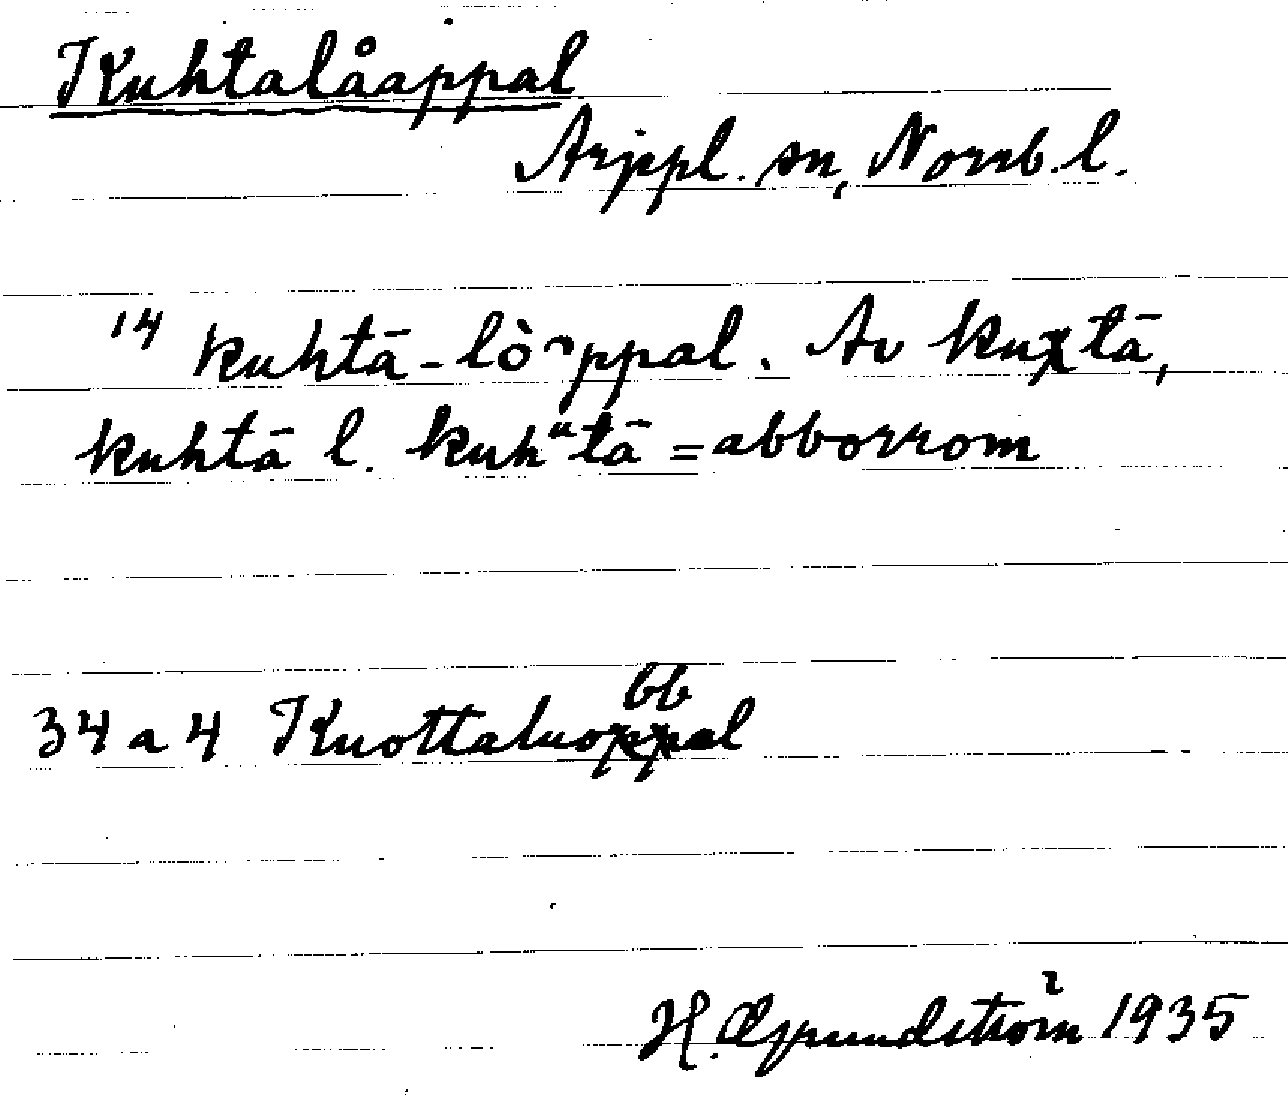 Kuhtalåappal
Arjepl. sn, Norrb. l.
14 kuhtā-lòᵃppal. Av kuχtā,
kuhtā l. kuhᵘtā = abborrom
34 a 4 Kuottaluobbal
H. Grundström 1935